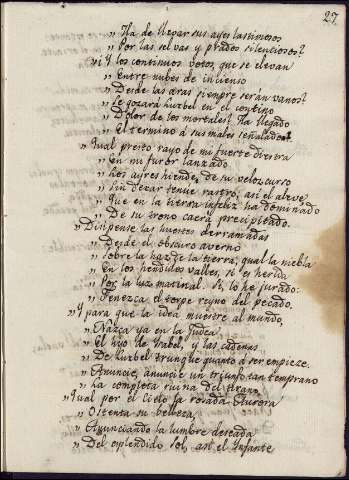 27
„ Ha de llevar sus ayes lastimosos
„ Por las selvas y prados silenciosos?
„ ¿Y los continuos votos, que se elevan
„ Entre nubes de incienso
„ Desde las aras siempre serán vanos?
„ Se gozará Luzbel en el contino
„ Dolor de los mortales? Ha llegado
„ El termino á sus males señalado.
„ Qual presto rayo de mi fuerte diestra
„ En mi furor lanzado
„ Los ayres hiende, de su veloz curso
„ Sin dexar tenue rastro; así el aleve
„ Que en la tierra infeliz ha dominado
„ De su trono caerá precipitado.
„ Disipense las huestes derramadas
„ Desde el obscuro averno
„ Sobre la haz de la tierra, qual la niebla
„ En los hondidos valles, si es herida
„ Por la luz matinal. Sí, lo he jurado:
„ Fenezca el torpe reyno del pecado.
„ Y para que la idea muestre al mundo,
„ Nazca ya en la Judea
„ El hijo de Isabel, y las cadenas
„ De Luzbel trunque quanto á ser empieze.
„ Anuncie, anuncie un triunfo tan temprano
„ La completa ruina del tirano.
„ Qual por el Cielo la rosada Aurora
„ Ostenta su belleza,
„ Anunciando la lumbre deseada
„ Del esplendido Sol, así el Infante